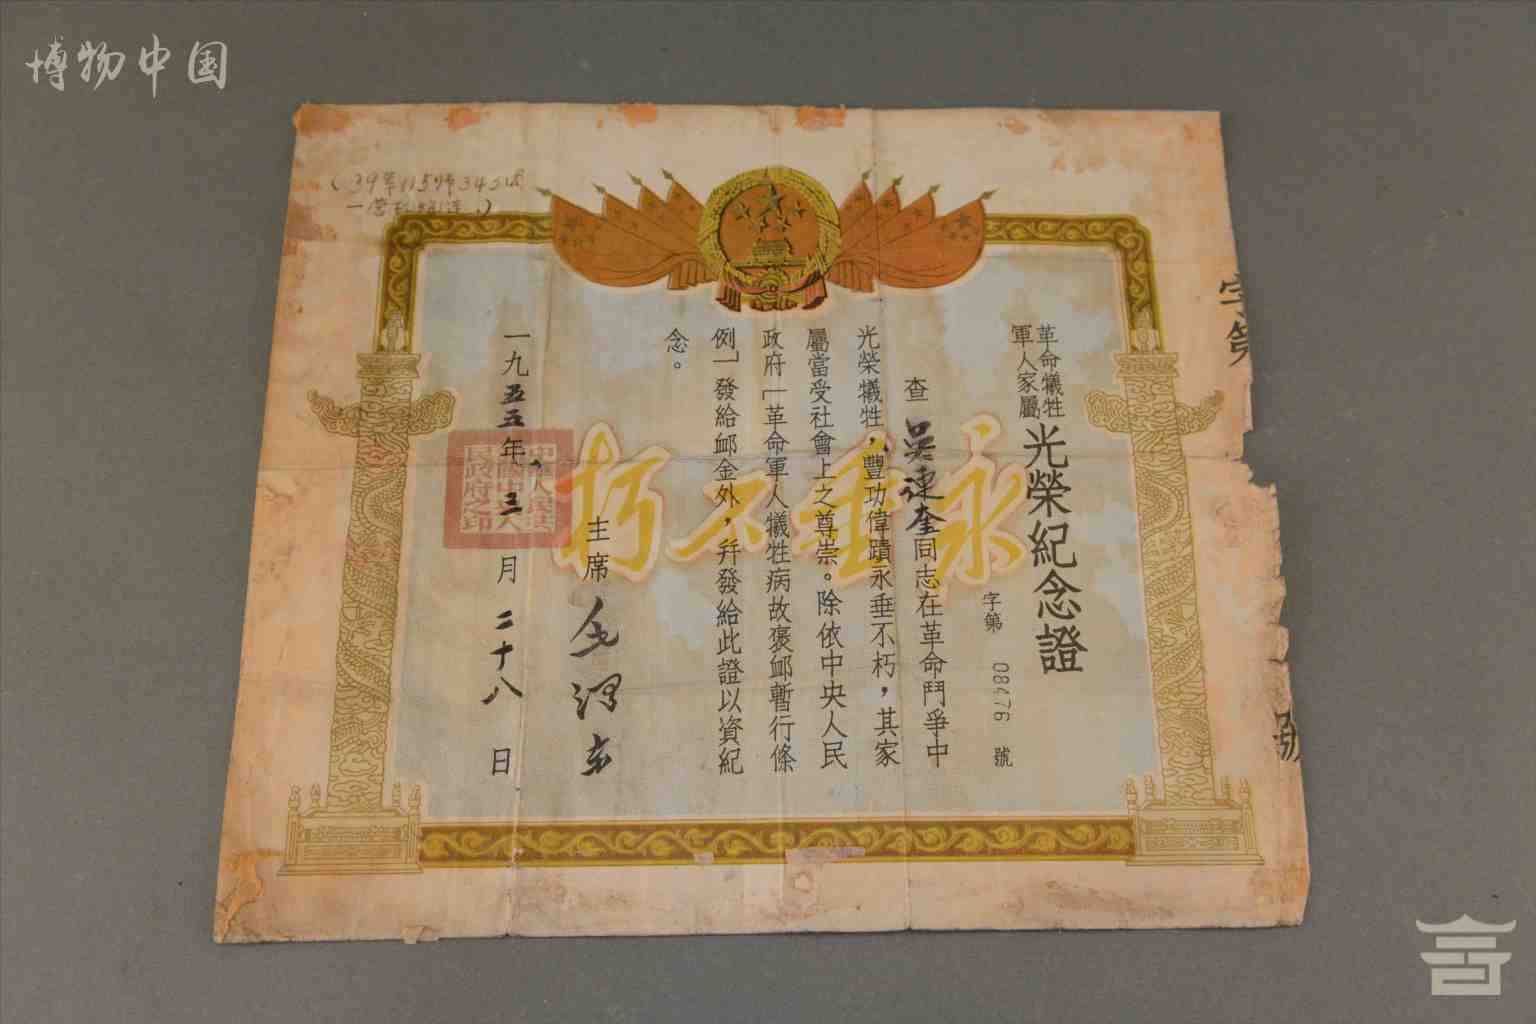 博物中国
(39年115师345团
一营
革命犧牲
軍人家屬
光榮紀念證
字第 08476 號
查吳連奎同志在革命鬥爭中
光榮犧牲,豐功偉蹟永垂不朽,其家
屬當受社會上之尊崇。除依中央人民
政府「革命軍人犧牲病故褒卹暫行條
例」發給卹金外,幷發給此證以資紀
念。
主席 毛澤东
一九五五年三月二十八日
永垂不朽
中華人民共
和國中央人
民政府之印
字第
號